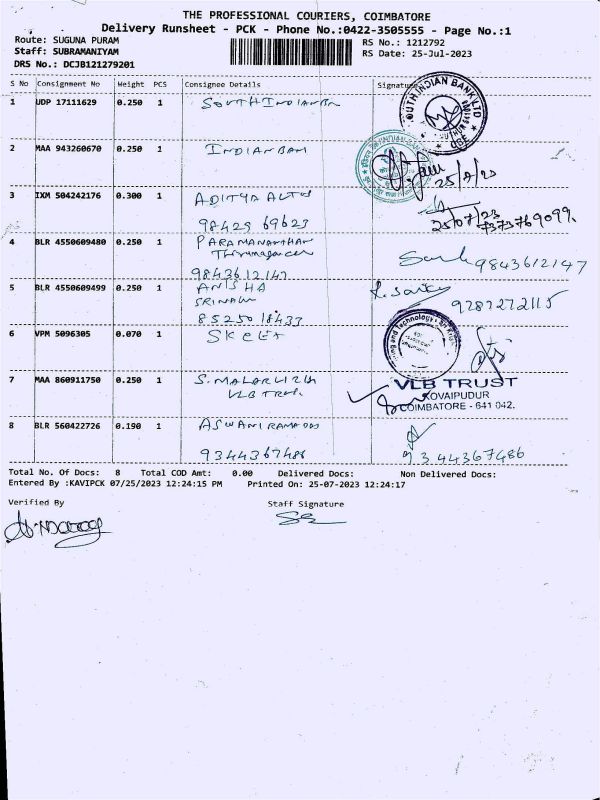 THE PROFESSIONAL COURIERS, COIMBATORE
Delivery Runsheet - PCK - Phone No.:0422-3505555 - Page No.:1
Route: SUGUNA PURAM RS No.: 1212792
Staff: SUBRAMANIYAM RS Date: 25-Jul-2023
DRS No.: DCJB121279201
S No Consignment No Weight PCS Consignee Details Signature
1 UDP 17111629 0.250 1 SOUTH INDIANBA
SOUTH INDIAN BANK LTD
2 MAA 943260670 0.250 1 INDIAN BAN
25/7/23
3 IXM 504242176 0.300 1 ADITYA
98429 69623 25/07/23 7373769099
4 BLR 4550609480 0.250 1 PARAMANANTHAN
9843612147 9843612147
5 BLR 4550609499 0.250 1 ANISHA
SRINAN 9287272115
85250 18433
6 VPM 5096305 0.070 1 SKCET
and Technology
7 MAA 860911750 0.250 1 S. MALARVIZH
VLB TRUS
VLB TRUST
KOVAIPUDUR
COIMBATORE - 641 042.
8 BLR 560422726 0.190 1 ASWANI
9344367486 9344367486
Total No. Of Docs: 8 Total COD Amt: 0.00 Delivered Docs: Non Delivered Docs:
Entered By :KAVIPCK 07/25/2023 12:24:15 PM Printed On: 25-07-2023 12:24:17
Verified By Staff Signature